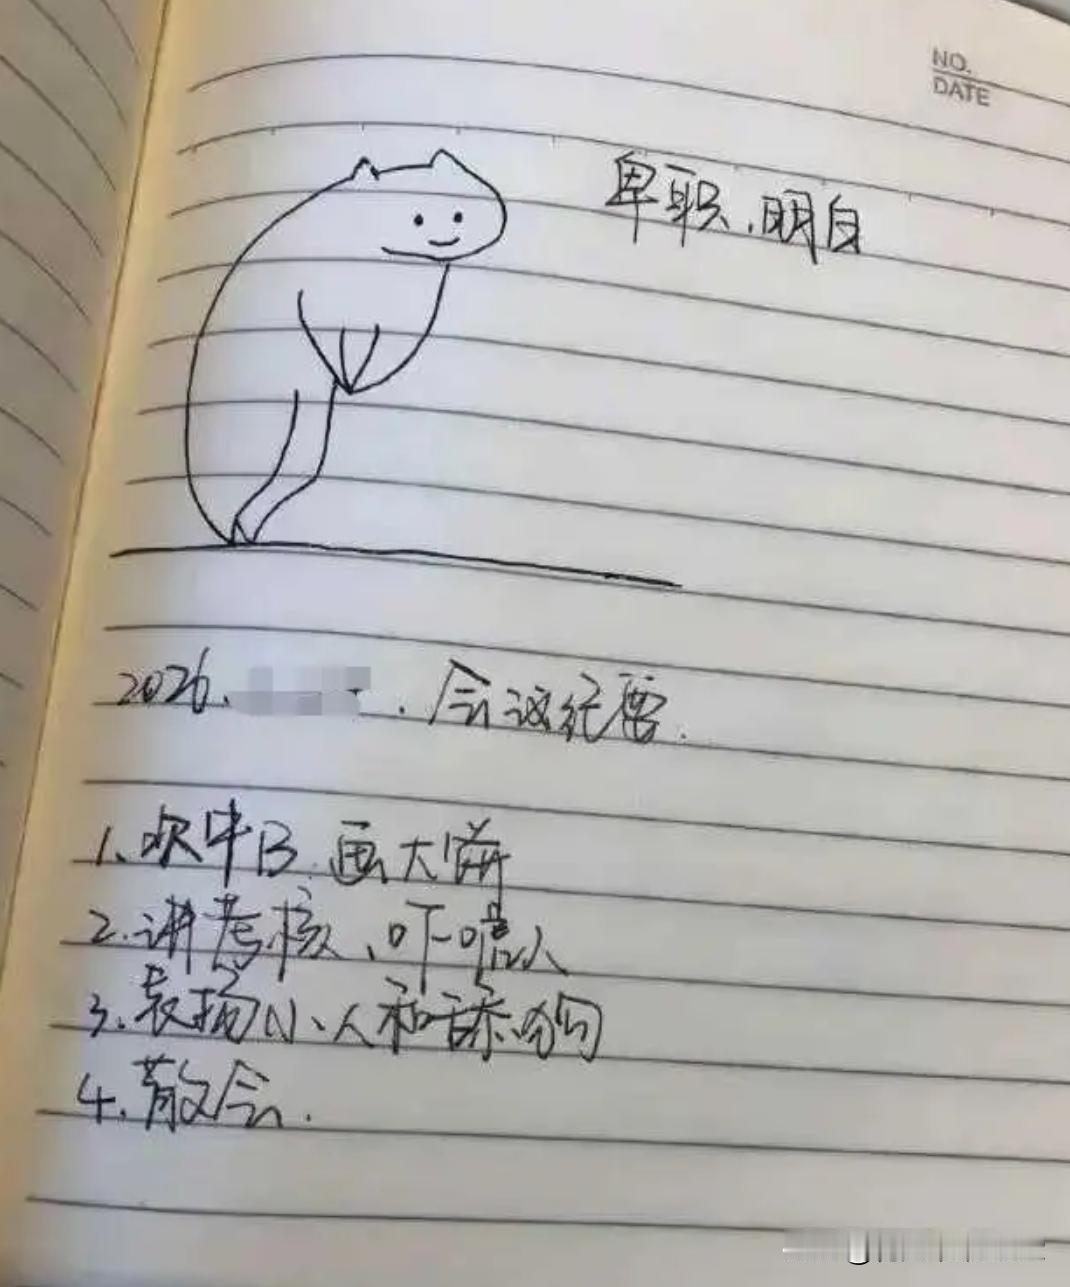 NO.
DATE
卑职、明白
2026. . 会议纪要.
1、吹牛B.画大饼
2.讲考核、吓唬人
3.表扬小人和舔狗
4.散会.